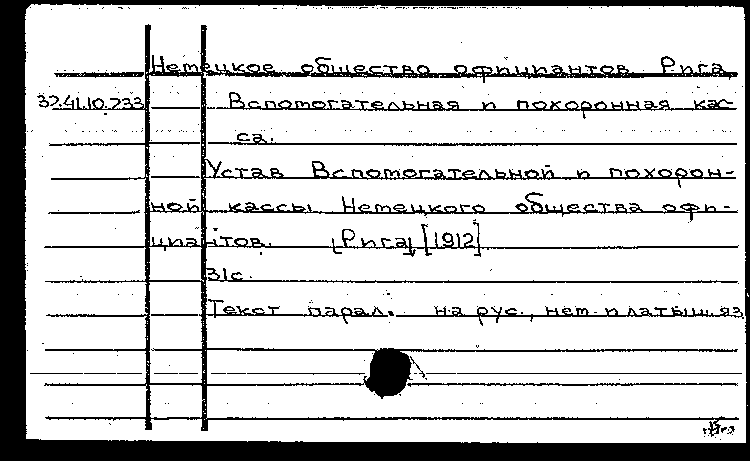 Немецкое общество официантов Рига
32.41.10.233 Вспомогательная и похоронная кас-
са.
Устав Вспомогательной и похорон-
ной кассы Немецкого общества офи-
циантов. [Рига], [1912]
31с.
Текст парал. на рус., нем. и латыш. яз